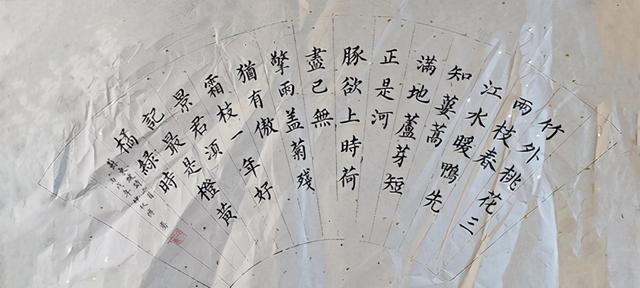 竹外桃花三
兩枝春
江水暖鴨先
知蔞蒿
滿地蘆芽短
正是河
豚欲上時荷
盡已無
擎雨蓋菊殘
猶有傲
霜枝一年好
景君須
記最是橙黃
橘綠時